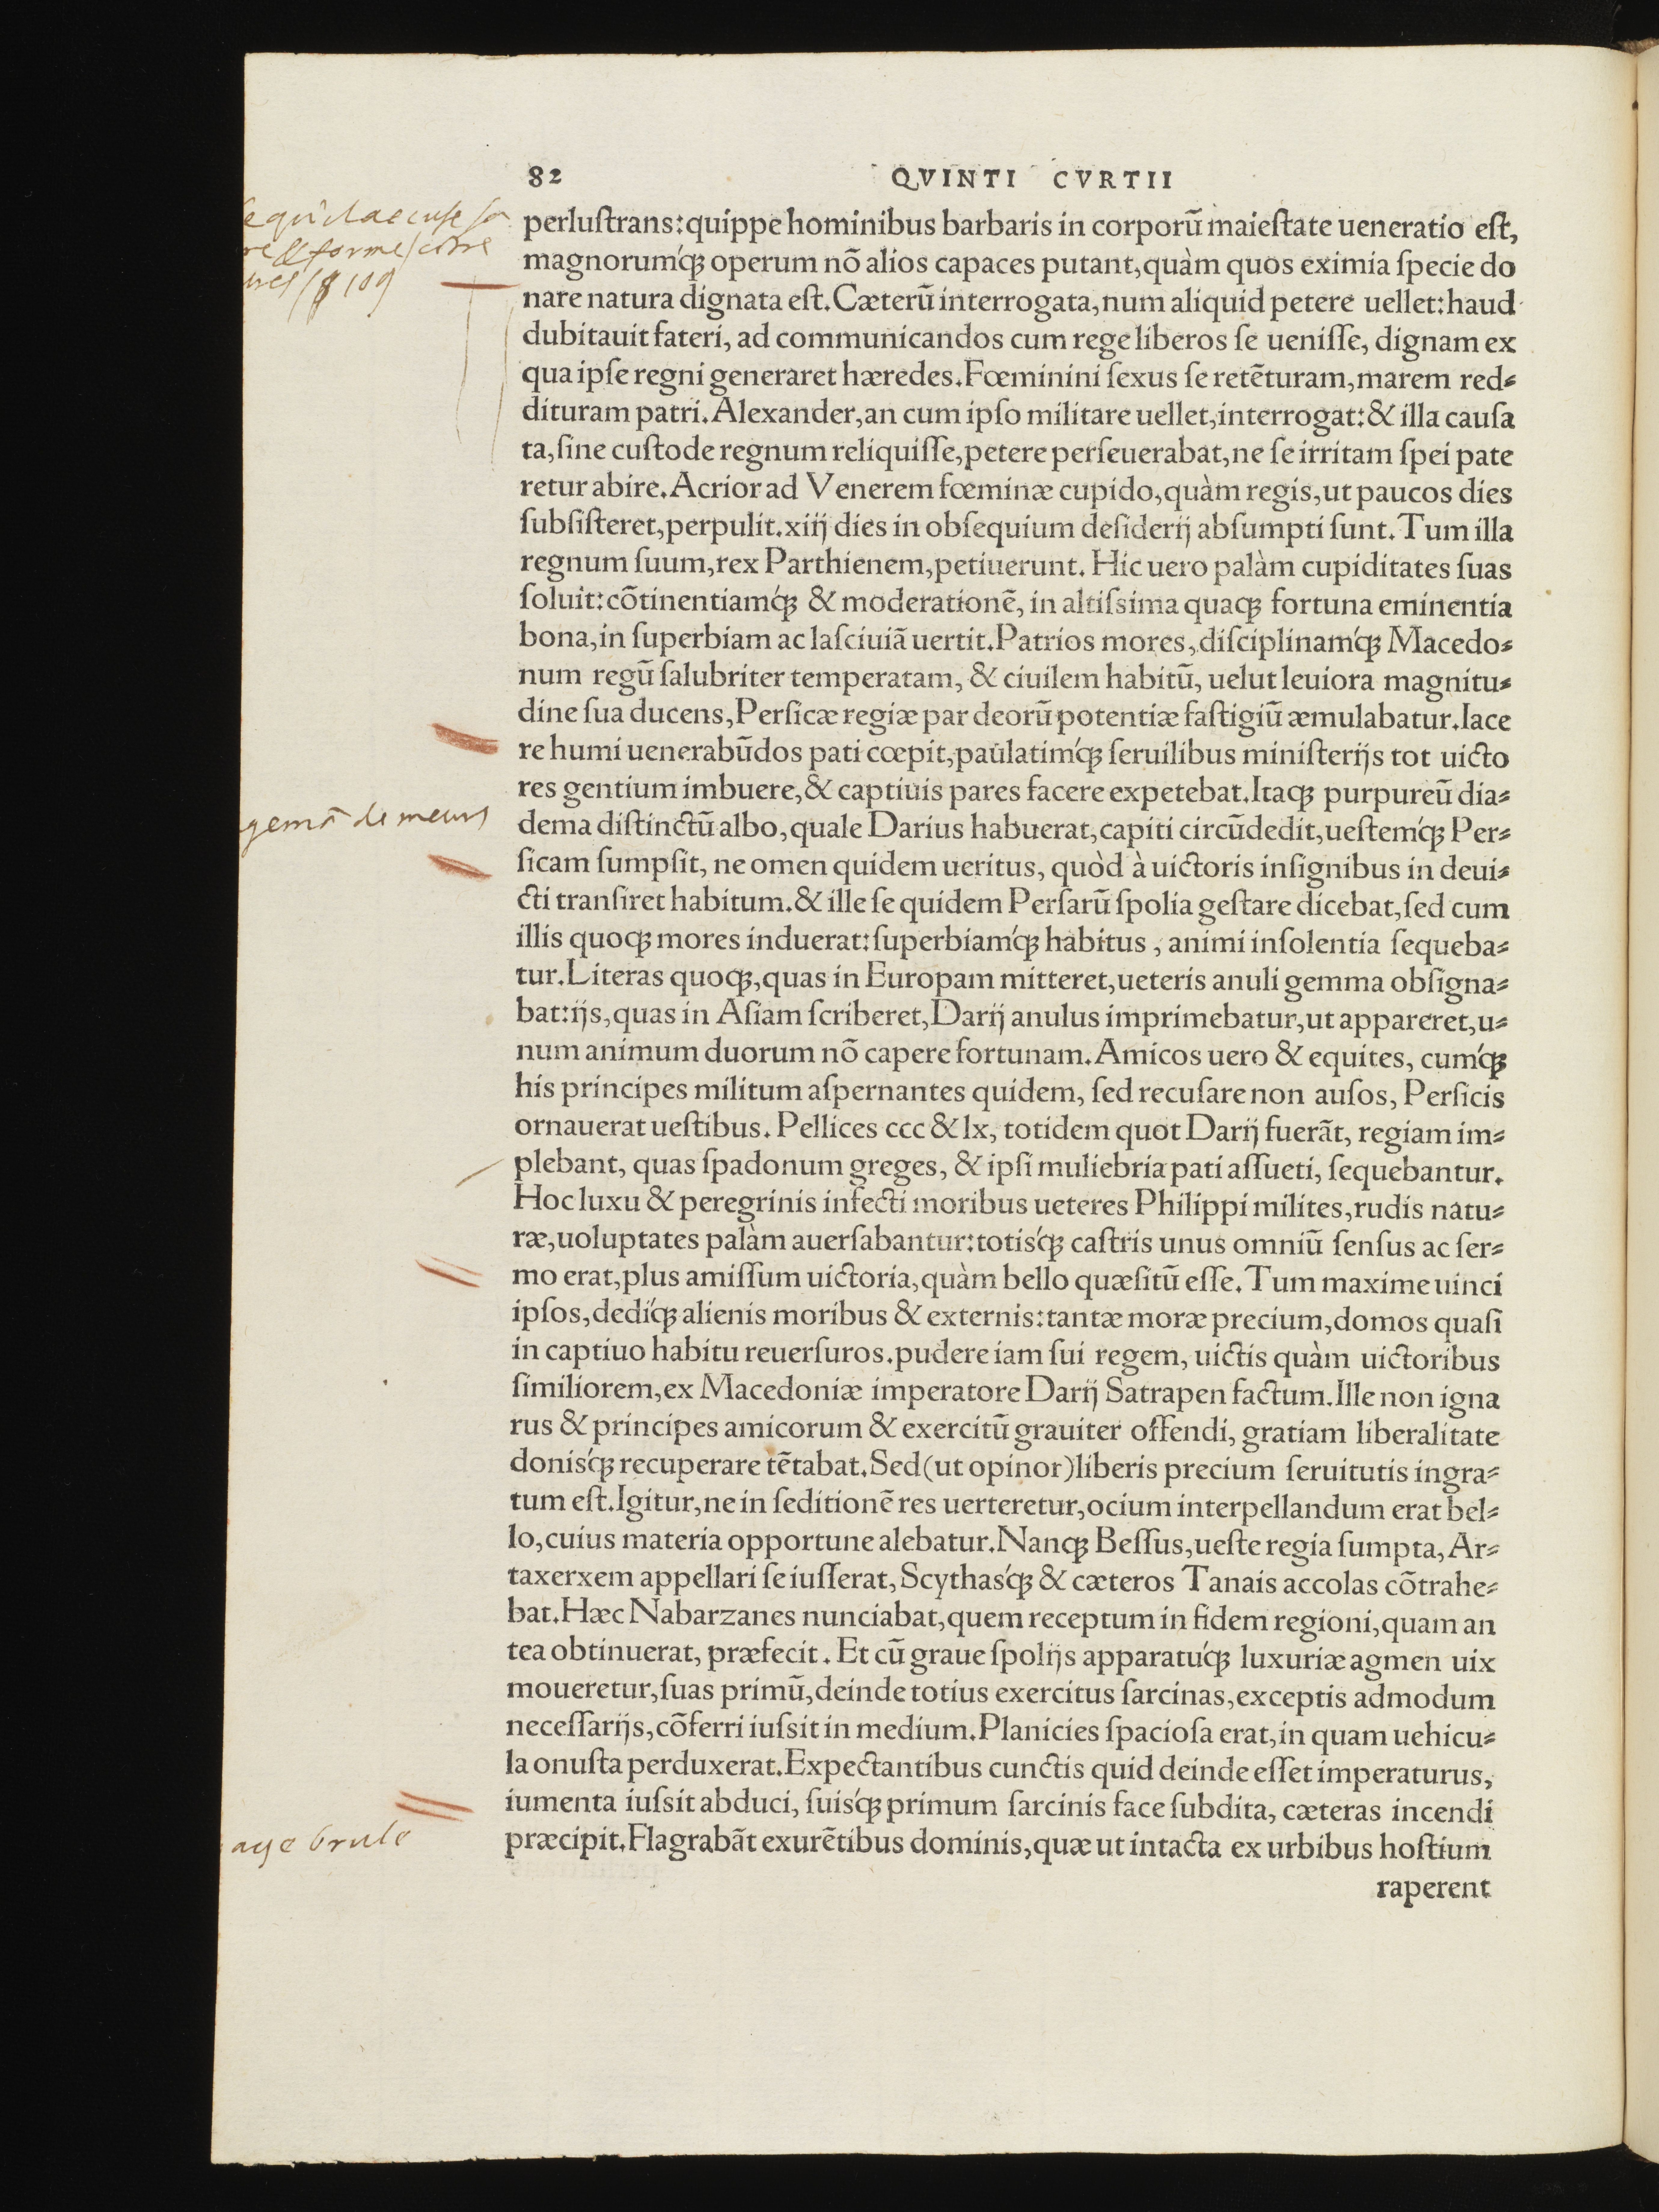 82 QVINTI CVRTII
perluſtrans: quippe hominibus barbaris in corporū maieſtate ueneratio eſt,
magnorumq́ꝫ operum nõ alios capaces putant, quàm quos eximia ſpecie do
nare natura dignata eſt. Cæterū interrogata, num aliquid petere uellet: haud
dubitauit fateri, ad communicandos cum rege liberos ſe ueniſſe, dignam ex
qua ipſe regni generaret hæredes. Fœminini ſexus ſe retēturam, marem red⸗
dituram patri. Alexander, an cum ipſo militare uellet, interrogat: & illa cauſa
ta, ſine cuſtode regnum reliquiſſe, petere perſeuerabat, ne ſe irritam ſpei pate
retur abire. Acrior ad Venerem fœminæ cupido, quàm regis, ut paucos dies
ſubſiſteret, perpulit. xiij dies in obſequium deſiderij abſumpti ſunt. Tum illa
regnum ſuum, rex Parthienem, petiuerunt. Hic uero palàm cupiditates ſuas
ſoluit: cõtinentiamq́ꝫ & moderationē, in altiſsima quaqꝫ fortuna eminentia
bona, in ſuperbiam ac laſciuiã uertit. Patrios mores, diſciplinamq́ꝫ Macedo⸗
num regū ſalubriter temperatam, & ciuilem habitū, uelut leuiora magnitu⸗
dine ſua ducens, Perſicæ regiæ par deorū potentiæ faſtigiū æmulabatur. Iace
re humi uenerabūdos pati cœpit, paulatimq́ꝫ ſeruilibus miniſterijs tot uicto
res gentium imbuere, & captiuis pares facere expetebat. Itaqꝫ purpureū dia⸗
gemã de meurs
dema diſtinctū albo, quale Darius habuerat, capiti circūdedit, ueſtemq́ꝫ Per⸗
ſicam ſumpſit, ne omen quidem ueritus, quòd à uictoris inſignibus in deui⸗
cti tranſiret habitum. & ille ſe quidem Perſarū ſpolia geſtare dicebat, ſed cum
illis quoqꝫ mores induerat: ſuperbiamq́ꝫ habitus, animi inſolentia ſequeba⸗
tur. Literas quoqꝫ, quas in Europam mitteret, ueteris anuli gemma obſigna⸗
bat: ijs, quas in Aſiam ſcriberet, Darij anulus imprimebatur, ut appareret, u⸗
num animum duorum nõ capere fortunam. Amicos uero & equites, cumq́ꝫ
his principes militum aſpernantes quidem, ſed recuſare non auſos, Perſicis
ornauerat ueſtibus. Pellices ccc & lx, totidem quot Darij fuerãt, regiam im⸗
plebant, quas ſpadonum greges, & ipſi muliebria pati aſſueti, ſequebantur.
Hoc luxu & peregrinis infecti moribus ueteres Philippi milites, rudis natu⸗
ræ, uoluptates palàm auerſabantur: totisq́ꝫ caſtris unus omniū ſenſus ac ſer⸗
mo erat, plus amiſſum uictoria, quàm bello quæſitū eſſe. Tum maxime uinci
ipſos, dediq́ꝫ alienis moribus & externis: tantæ moræ precium, domos quaſi
in captiuo habitu reuerſuros. pudere iam ſui regem, uictis quàm uictoribus
ſimiliorem, ex Macedoniæ imperatore Darij Satrapen factum. Ille non igna
rus & principes amicorum & exercitū grauiter offendi, gratiam liberalitate
donisq́ꝫ recuperare tētabat. Sed (ut opinor) liberis precium ſeruitutis ingra⸗
tum eſt. Igitur, ne in ſeditionē res uerteretur, ocium interpellandum erat bel⸗
lo, cuius materia opportune alebatur. Nanqꝫ Beſſus, ueſte regia ſumpta, Ar⸗
taxerxem appellari ſe iuſſerat, Scythasq́ꝫ & cæteros Tanais accolas cõtrahe⸗
bat. Hæc Nabarzanes nunciabat, quem receptum in fidem regioni, quam an
tea obtinuerat, præfecit. Et cū graue ſpolijs apparatuq́ꝫ luxuriæ agmen uix
moueretur, ſuas primū, deinde totius exercitus ſarcinas, exceptis admodum
neceſſarijs, cõferri iuſsit in medium. Planicies ſpacioſa erat, in quam uehicu⸗
la onuſta perduxerat. Expectantibus cunctis quid deinde eſſet imperaturus,
iumenta iuſsit abduci, ſuisq́ꝫ primum ſarcinis face ſubdita, cæteras incendi
age brule
præcipit. Flagrabãt exurētibus dominis, quæ ut intacta ex urbibus hoſtium
raperent